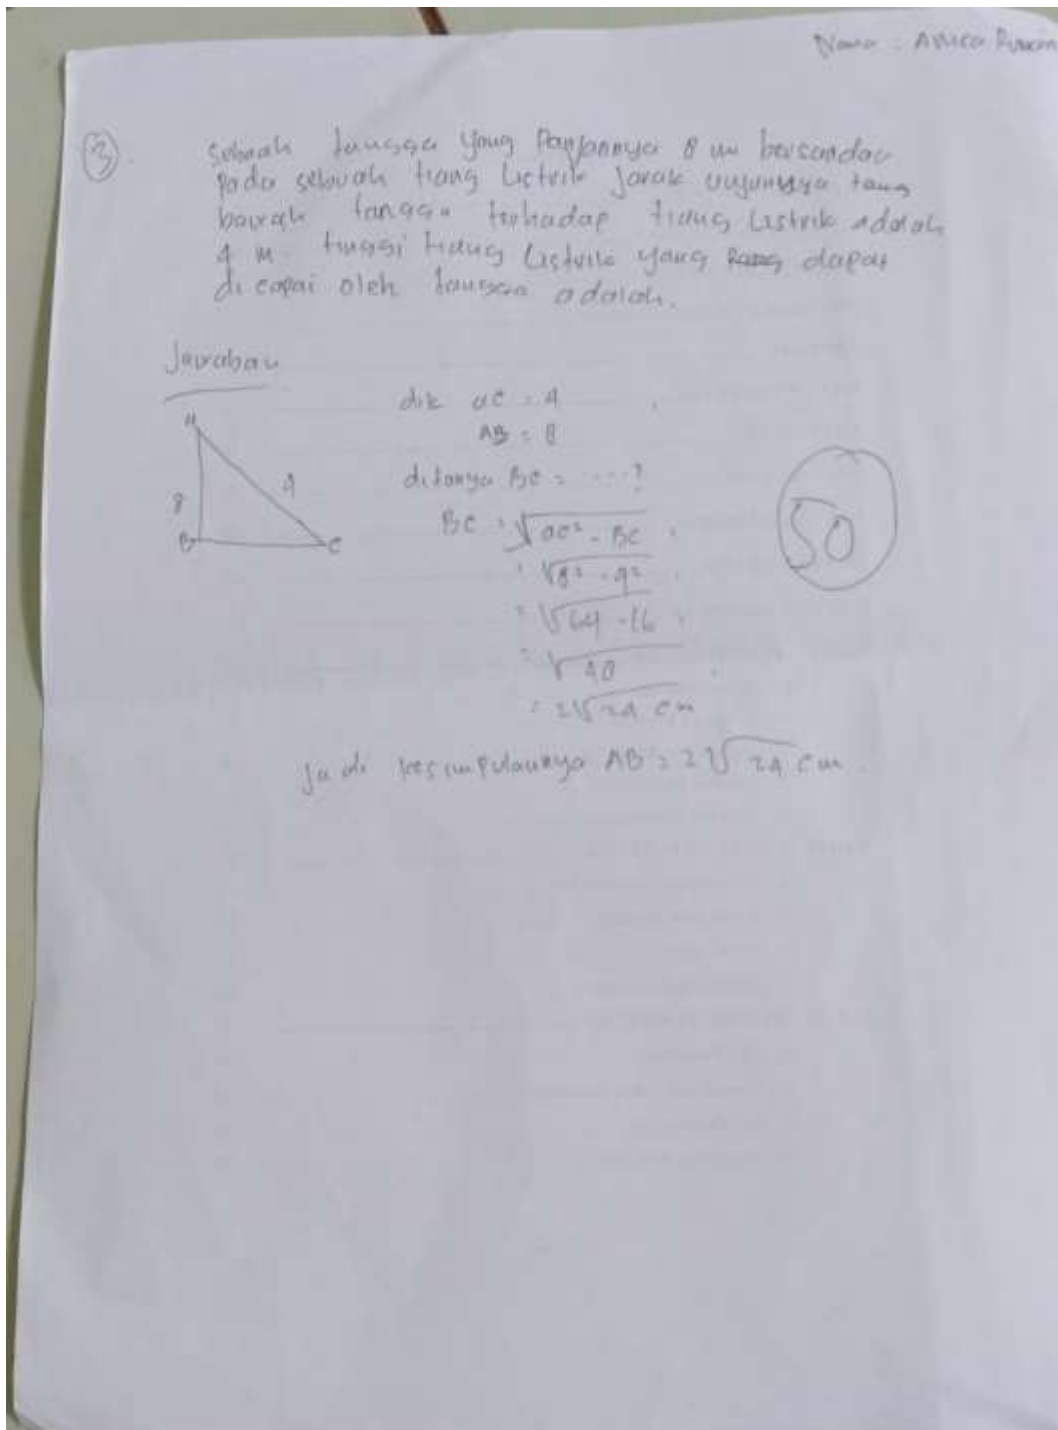 Nama : Anisa
3
Sebuah tangga yang Panjannya 8 m bersandar
pada sebuah tiang Listrik Jarak ujungnya tang
bawah tangga terhadap tiang Listrik adalah
4 m. tinggi tiang Listrik yang dapat
di capai oleh tangga adalah.
Jawaban
A
8
4
B
C
dik ac = 4
AB = 8
ditanya BC = ....?
BC = √ac² - BC
= √8² - 4²
= √64 - 16
= √48
= 2√24 cm
50
Jadi kesimpulannya AB = 2√24 cm.